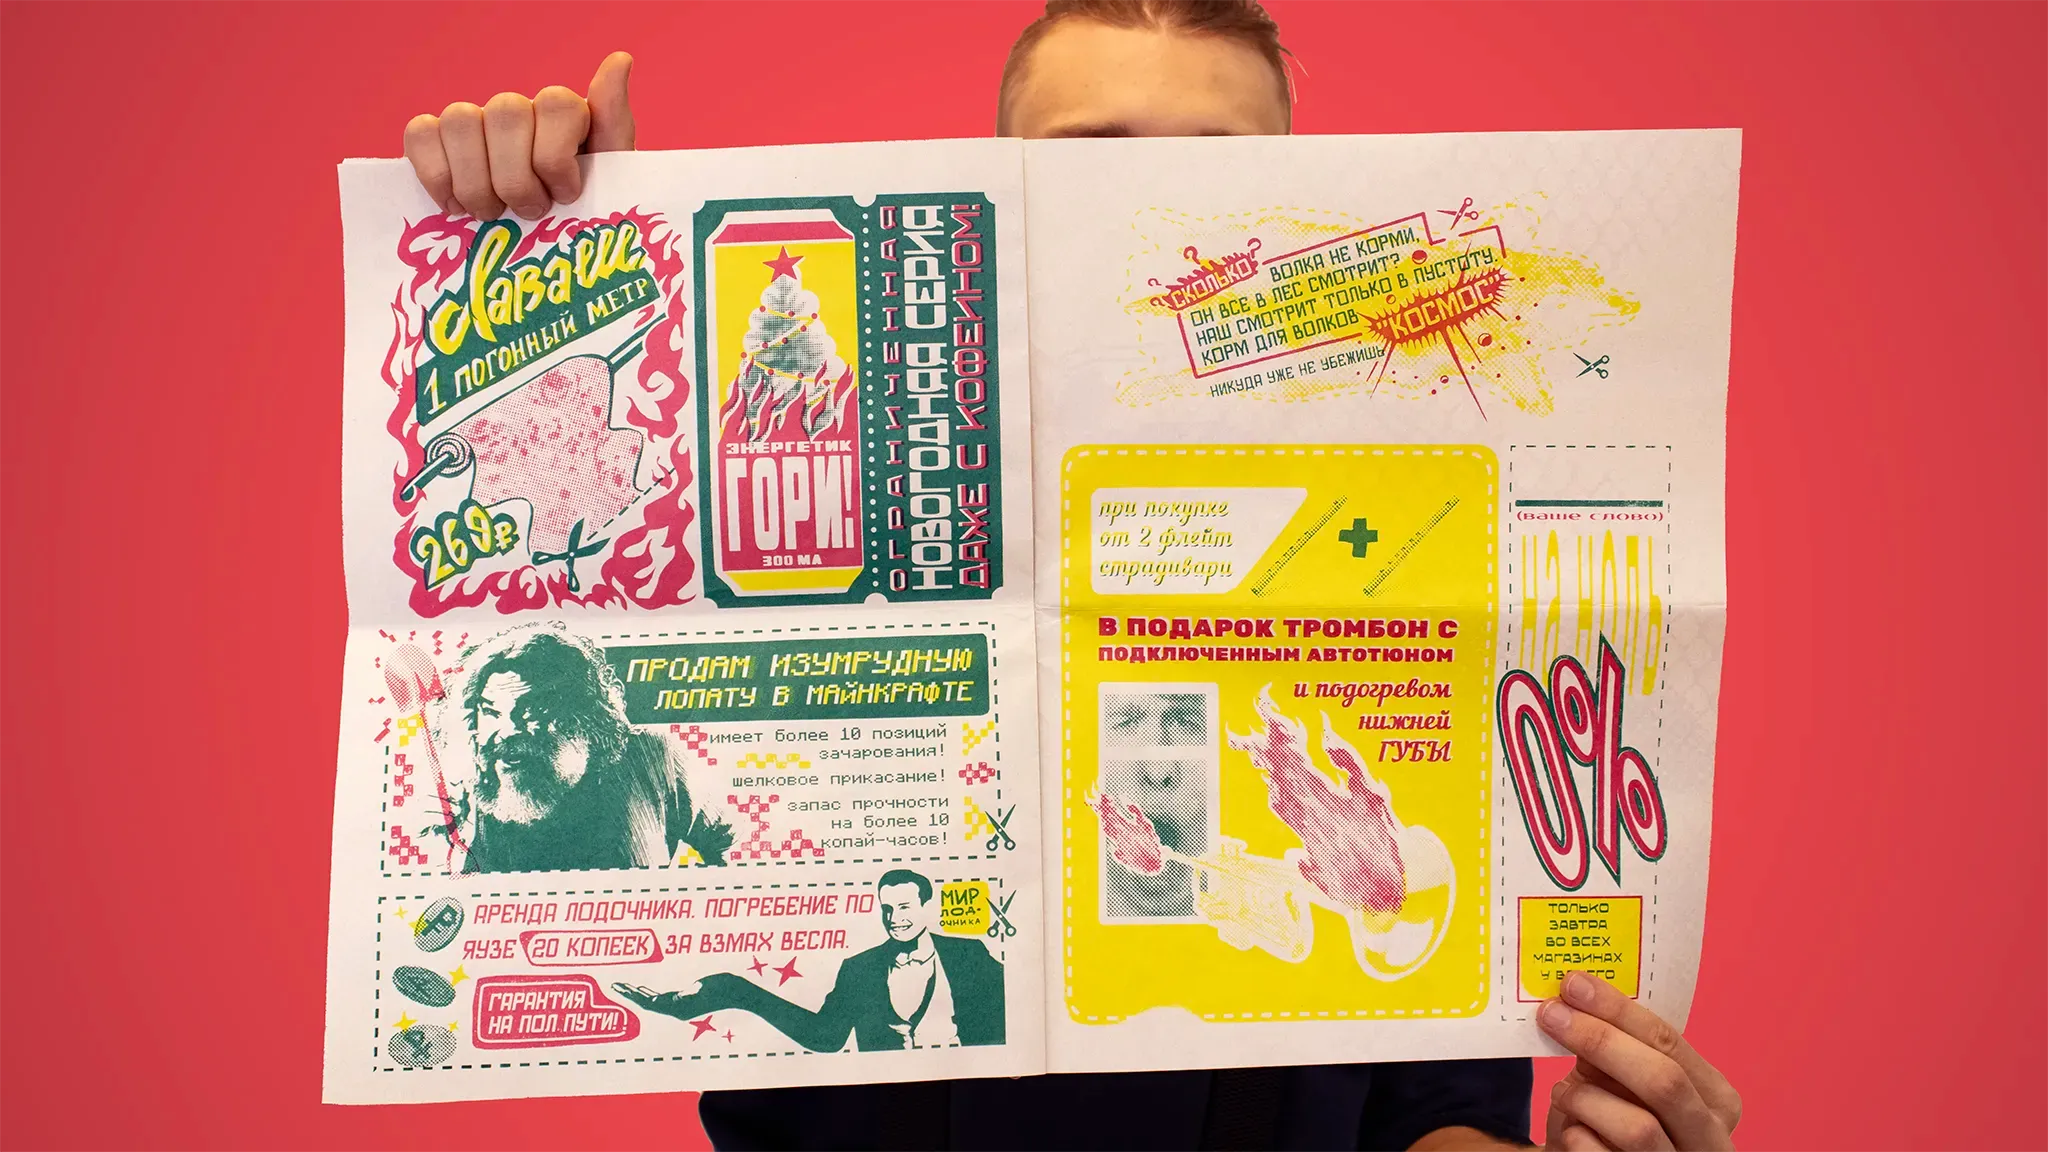 лаваш
1 ПОГОННЫЙ МЕТР
269₽
ЭНЕРГЕТИК
ГОРИ!
300 МА
ОГРАНИЧЕННАЯ
НОВОГОДНЯЯ
ДАЖЕ С КОФЕИНОМ!
ПРОДАМ ИЗУМРУДНУЮ
ЛОПАТУ В МАЙНКРАФТЕ
имеет более 10 позиций
зачарования!
шелковое прикасание!
запас прочности
на более 10
копай-часов!
АРЕНДА ЛОДОЧНИКА. ПОГРЕБЕНИЕ ПО
ЯУЗЕ 20 КОПЕЕК ЗА ВЗМАХ ВЕСЛА.
ГАРАНТИЯ
НА ПОЛ ПУТИ!
МИР
ЛОД-
ОЧНИКА
СКОЛЬКО ВОЛКА НЕ КОРМИ,
ОН ВСЕ В ЛЕС СМОТРИТ?
НАШ СМОТРИТ ТОЛЬКО В ПУСТОТУ.
КОРМ ДЛЯ ВОЛКОВ "КОСМОС"
НИКУДА УЖЕ НЕ УБЕЖИШЬ
при покупке
от 2 флейт
страдивари
+
В ПОДАРОК ТРОМБОН С
ПОДКЛЮЧЕННЫМ АВТОТЮНОМ
и подогревом
нижней
ГУБЫ
(ваше слово)
НА НОЛЬ
0%
ТОЛЬКО
ЗАВТРА
ВО ВСЕХ
МАГАЗИНАХ
У